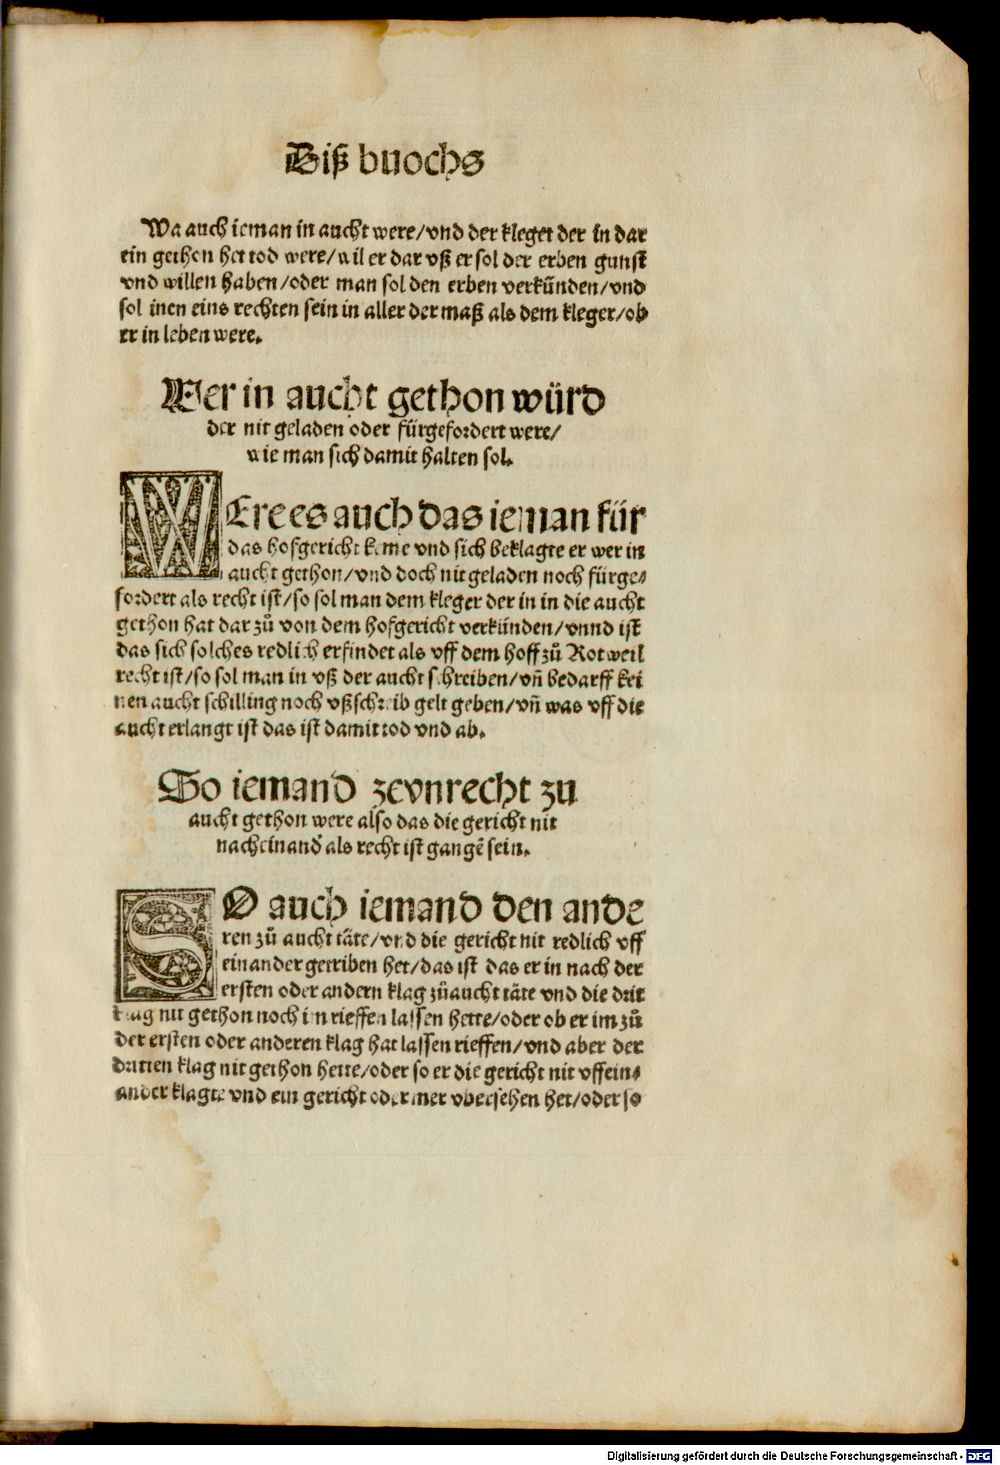 Diß buochs
Wa auch ieman in aucht were/vnd der kleger der in dar
ein gethon het tod were/wil er dar vß er sol der erben gunst
vnd willen haben/oder man sol den erben verkünden/vnd
sol inen eins rechten sein in aller der maß als dem kleger/ob
er in leben were.
Wer in aucht gethon würd
der nit geladen oder fürgefordert were/
wie man sich damit halten sol.
WEre es auch das ieman für
das hofgericht keme vnd sich beklagte er wer in
aucht gethon/vnd doch nit geladen noch fürge⸗
fordert als recht ist/so sol man dem kleger der in in die aucht
gethon hat dar zů von dem hofgericht verkünden/vnnd ist
das sich solches redlich erfindet als vff dem hoff zů Rotweil
recht ist/so sol man in vß der aucht schreiben/vñ bedarff kei
nen aucht schilling noch vßschreib gelt geben/vñ was vff die
aucht erlangt ist das ist damit tod vnd ab.
So iemand zevnrecht zu
aucht gethon were also das die gericht nit
nacheinand' als recht ist gangẽ sein.
SO auch iemand den ande
ren zů aucht täte/vnd die gericht nit redlich vff
einander getriben het/das ist das er in nach der
ersten oder andern klag zů aucht täte vnd die drit
klag nit gethon noch im rieffen lassen hette/oder ob er im zů
der ersten oder anderen klag hat lassen rieffen/vnd aber der
dritten klag nit gethon hette/oder so er die gericht nit vffein⸗
ander klagte vnd ein gericht oder mer vbersehen het/oder so
Digitalisierung gefördert durch die Deutsche Forschungsgemeinschaft - DFG